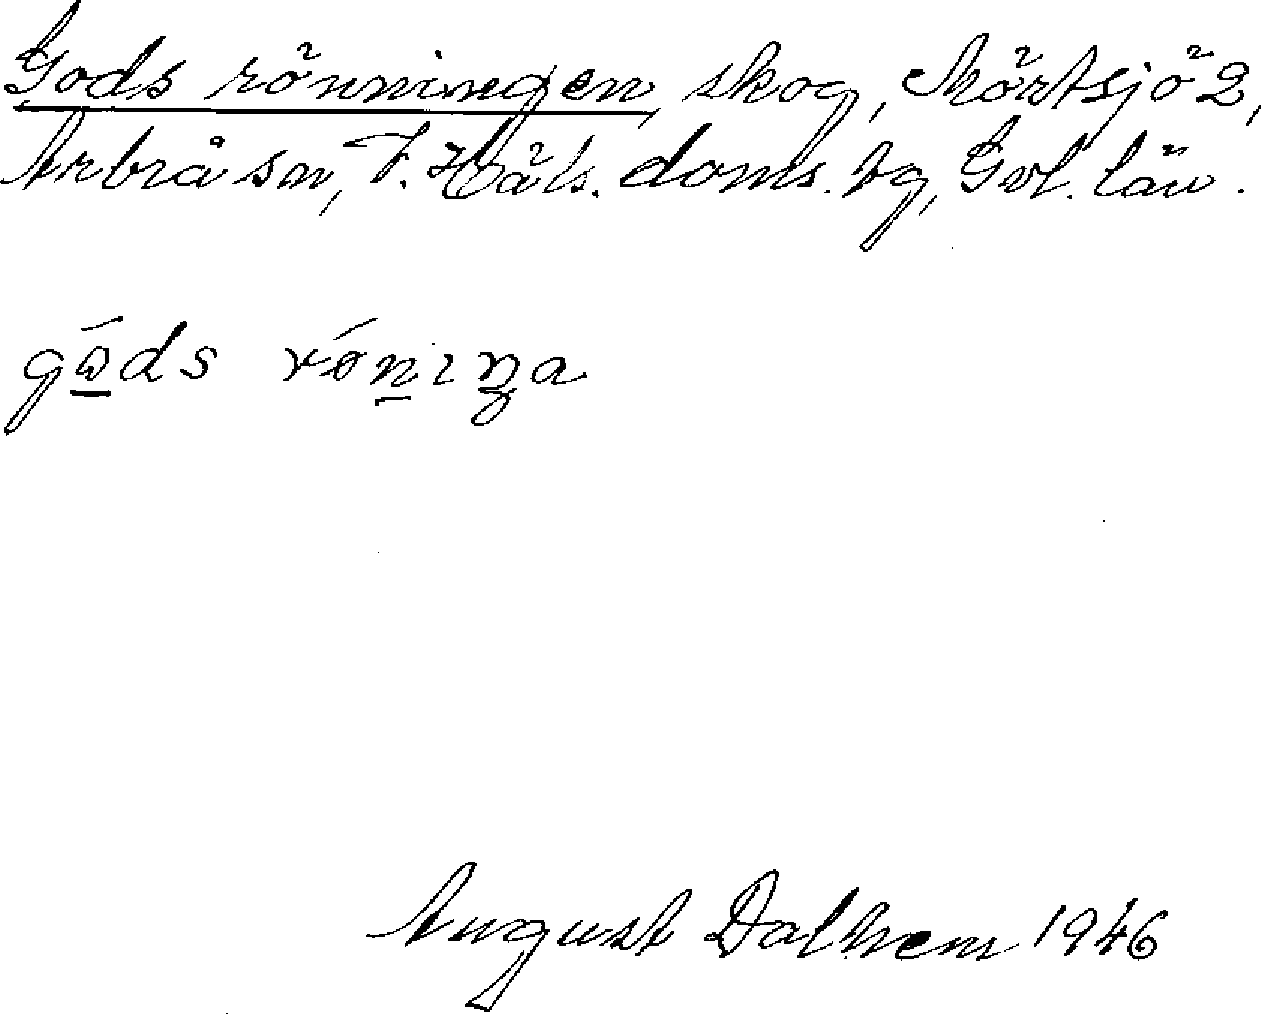 Gods rönningen, skog, Mörtsjö 2,
Arbrå sn, V. Häls. doms. tg, Gvl. län.
gɷ́ds rǿnıŋa
August Dalhem 1946